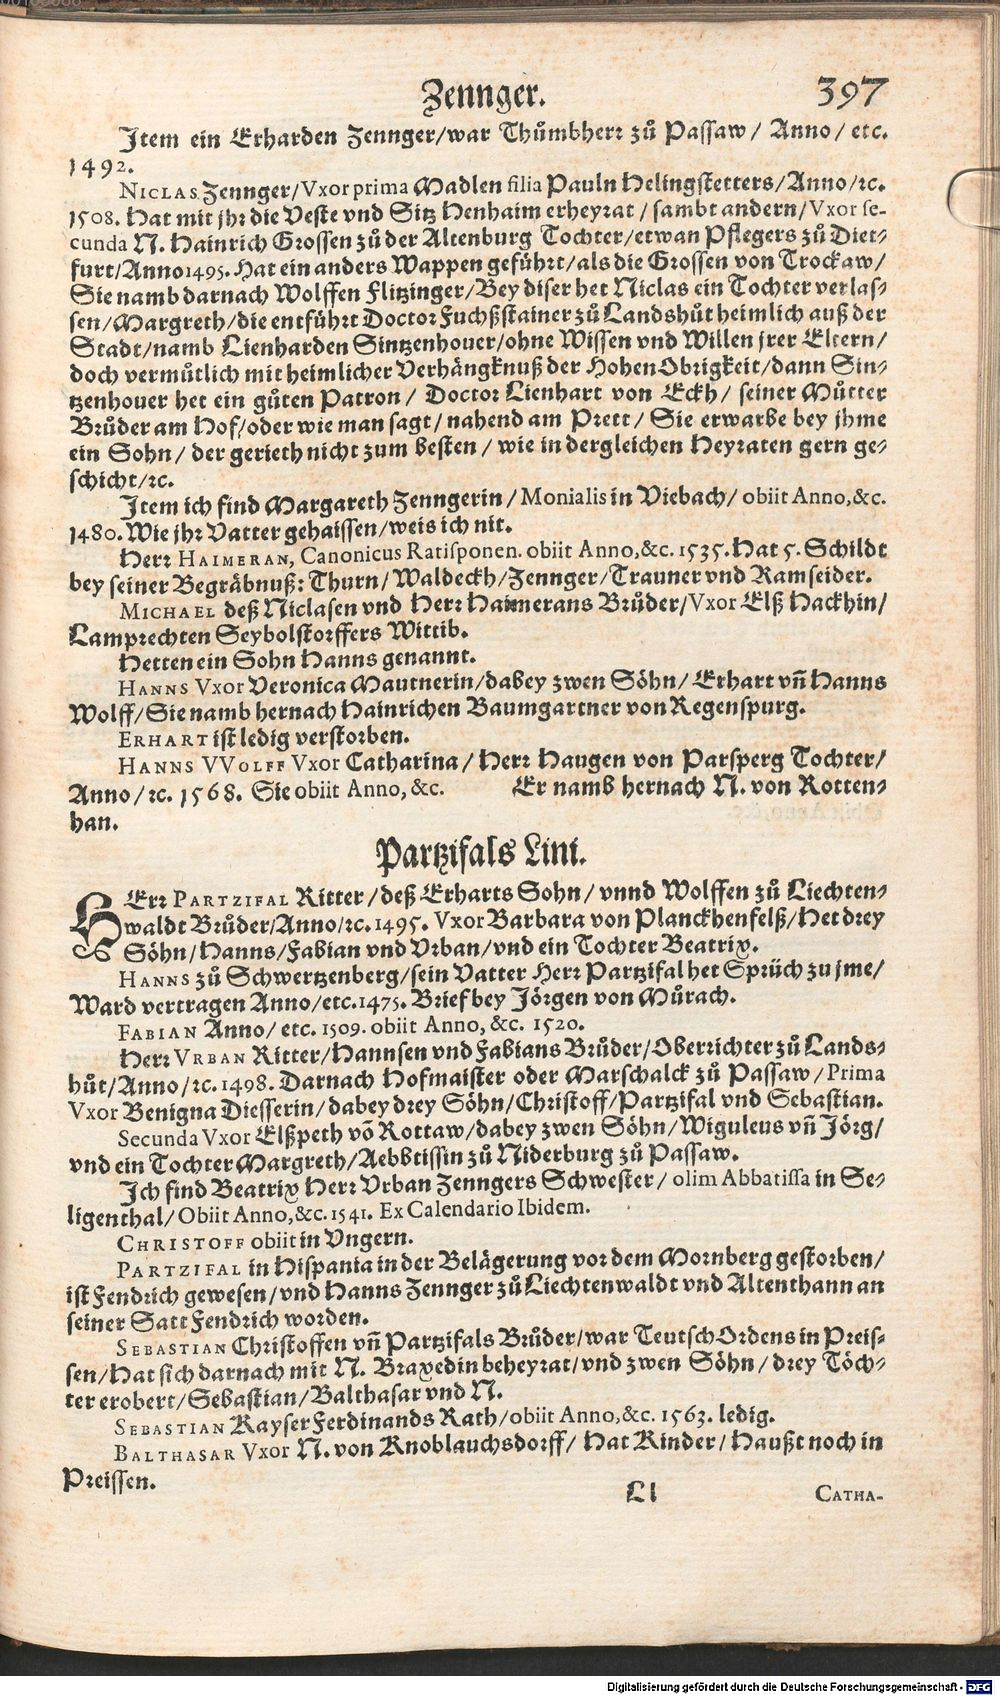 Zennger. 397
Item ein Erharden Zennger/war Thůmbherr zů Passaw/ Anno/ etc.
1492.
NICLAS Zennger/Vxor prima Madlen filia Pauln Helingstetters/Anno/ꝛc.
1508. Hat mit jhr die Veste vnd Sitz Henhaim erheyrat/ sambt andern/Vxor se-
cunda N. Hainrich Grossen zů der Altenburg Tochter/etwan Pflegers zů Diet-
furt/Anno 1495. Hat ein anders Wappen geführt/als die Grossen von Trockaw/
Sie namb darnach Wolffen Flitzinger/Bey diser het Niclas ein Tochter verlas-
sen/Margreth/die entführt Doctor Fuchßstainer zů Landshůt heimlich auß der
Stadt/namb Lienharden Sintzenhouer/ohne Wissen vnd Willen jrer Eltern/
doch vermůtlich mit heimlicher Verhängknuß der Hohen Obrigkeit/dann Sin-
tzenhouer het ein gůten Patron/ Doctor Lienhart von Eckh/ seiner Můtter
Brůder am Hof/oder wie man sagt/nahend am Prett/ Sie erwarbe bey jhme
ein Sohn/ der gerieth nicht zum besten/ wie in dergleichen Heyraten gern ge-
schicht/ꝛc.
Item ich find Margareth Zenngerin/Monialis in Viebach/ obiit Anno,&c.
1480. Wie jhr Vatter gehaissen/weis ich nit.
Herr HAIMERAN, Canonicus Ratisponen. obiit Anno,&c. 1535. Hat 5. Schildt
bey seiner Begräbnuß: Thurn/Waldeckh/Zennger/Trauner vnd Ramseider.
MICHAEL deß Niclasen vnd Herr Haimerans Brůder/Vxor Elß Hackhin/
Lamprechten Seybolstorffers Wittib.
Hetten ein Sohn Hanns genannt.
HANNS Vxor Veronica Mautnerin/dabey zwen Söhn/ Erhart vñ Hanns
Wolff/Sie namb hernach Hainrichen Baumgartner von Regenspurg.
ERHART ist ledig verstorben.
HANNS VVOLFF Vxor Catharina/ Herr Haugen von Parsperg Tochter/
Anno/ꝛc. 1568. Sie obiit Anno, &c. Er namb hernach N. von Rotten-
han.
Partzifals Lini.
HErr PARTZIFAL Ritter/deß Erharts Sohn/ vnnd Wolffen zů Liechten-
waldt Brůder/Anno/ꝛc. 1495. Vxor Barbara von Planckhenfelß/Het drey
Söhn/Hanns/Fabian vnd Vrban/vnd ein Tochter Beatrix.
HANNS zů Schwertzenberg/sein Vatter Herr Partzifal het Sprüch zu jme/
Ward vertragen Anno/etc. 1475. Brief bey Jörgen von Můrach.
FABIAN Anno/ etc. 1509. obiit Anno, &c. 1520.
Herr VRBAN Ritter/Hannsen vnd Fabians Brůder/Oberrichter zů Lands-
hůt/Anno/ꝛc. 1498. Darnach Hofmaister oder Marschalck zů Passaw/Prima
Vxor Benigna Diesserin/dabey drey Söhn/Christoff/Partzifal vnd Sebastian.
Secunda Vxor Elßpeth võ Rottaw/dabey zwen Söhn/Wiguleus vñ Jörg/
vnd ein Tochter Margreth/Aebbtissin zů Niderburg zů Passaw.
Ich find Beatrix Herr Vrban Zenngers Schwester/ olim Abbatissa in Se-
ligenthal/Obiit Anno,&c. 1541. Ex Calendario Ibidem.
CHRISTOFF obiit in Vngern.
PARTZIFAL in Hispania in der Belägerung vor dem Mornberg gestorben/
ist Fendrich gewesen/vnd Hanns Zennger zů Liechtenwaldt vnd Altenthann an
seiner Satt Fendrich worden.
SEBASTIAN Christoffen vñ Partzifals Brůder/war Teutsch Ordens in Preis-
sen/Hat sich darnach mit N. Braxedin beheyrat/vnd zwen Söhn/drey Töch-
ter erobert/Sebastian/Balthasar vnd N.
SEBASTIAN Kayser Ferdinands Rath/obiit Anno,&c. 1563. ledig.
BALTHASAR Vxor N. von Knoblauchsdorff/ Hat Kinder/Haußt noch in
Preissen.
Ll CATHA-
Digitalisierung gefördert durch die Deutsche Forschungsgemeinschaft - DFG